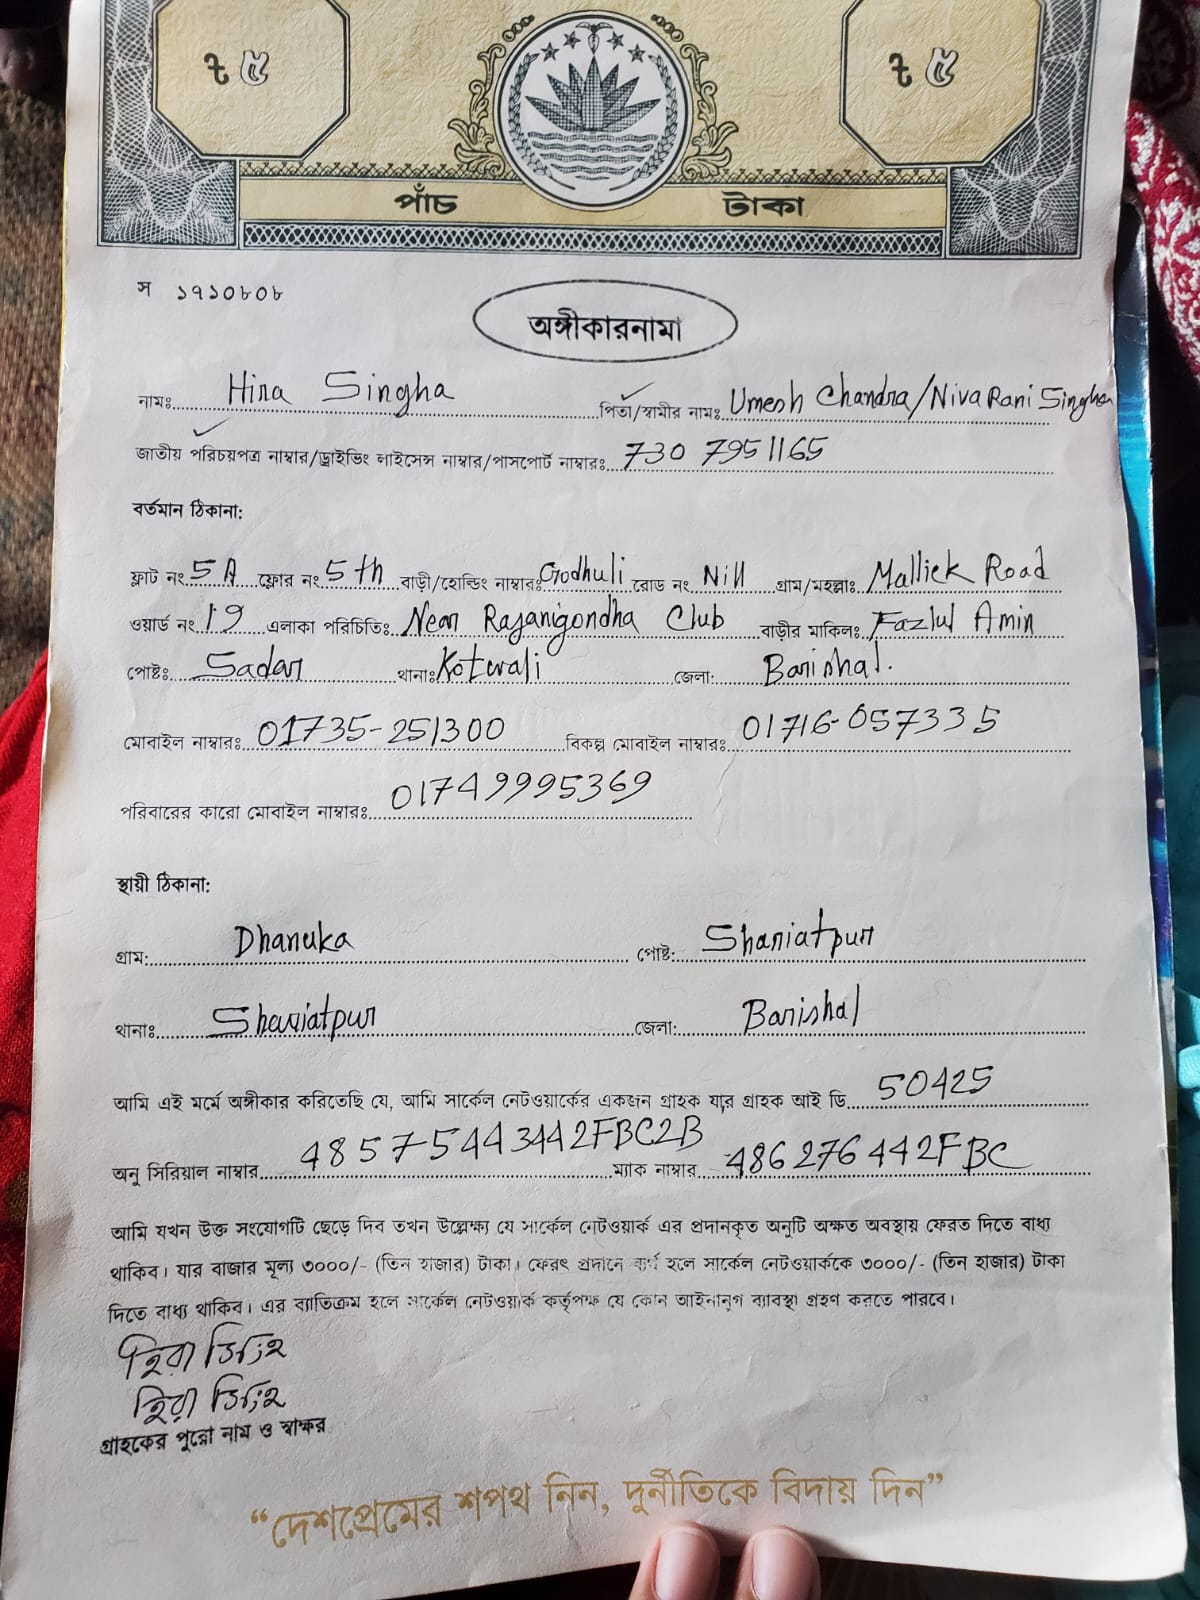 ৳ ৫ ৳ ৫
পাঁচ টাকা
স ১৭১০৮০৮
অঙ্গীকারনামা
নামঃ Hira Singha পিতা/স্বামীর নামঃ Umesh Chandra/Niva Rani Singha
জাতীয় পরিচয়পত্র নাম্বার/ড্রাইভিং লাইসেন্স নাম্বার/পাসপোর্ট নাম্বারঃ 730 7951165
বর্তমান ঠিকানা:
ফ্লাট নং 5 A ফ্লোর নং 5 th বাড়ী/হোল্ডিং নাম্বারঃ Godhuli রোড নং Nill গ্রাম/মহল্লাঃ Mallick Road
ওয়ার্ড নং 19 এলাকা পরিচিতিঃ Near Rajanigondha Club বাড়ীর মালিকঃ Fazlul Amin
পোষ্টঃ Sadar থানাঃ Kotwali জেলা: Barishal.
মোবাইল নাম্বারঃ 01735-251300 বিকল্প মোবাইল নাম্বারঃ 01716-057335
পরিবারের কারো মোবাইল নাম্বারঃ 01749995369
স্থায়ী ঠিকানা:
গ্রাম: Dhanuka পোষ্ট: Shariatpur
থানাঃ Shariatpur জেলা: Barishal
আমি এই মর্মে অঙ্গীকার করিতেছি যে, আমি সার্কেল নেটওয়ার্কের একজন গ্রাহক যার গ্রাহক আই ডি 50425
অনু সিরিয়াল নাম্বার 48575443442FBC2B ম্যাক নাম্বার 486276442FBC
আমি যখন উক্ত সংযোগটি ছেড়ে দিব তখন উল্লেক্ষ্য যে সার্কেল নেটওয়ার্ক এর প্রদানকৃত অনুটি অক্ষত অবস্থায় ফেরত দিতে বাধ্য
থাকিব। যার বাজার মূল্য ৩০০০/- (তিন হাজার) টাকা। ফেরৎ প্রদানে ব্যর্থ হলে সার্কেল নেটওয়ার্ককে ৩০০০/- (তিন হাজার) টাকা
দিতে বাধ্য থাকিব। এর ব্যাতিক্রম হলে সার্কেল নেটওয়ার্ক কর্তৃপক্ষ যে কোন আইনানুগ ব্যাবস্থা গ্রহণ করতে পারবে।
হিরা সিংহ
হিরা সিংহ
গ্রাহকের পুরো নাম ও স্বাক্ষর
“দেশপ্রেমের শপথ নিন, দুর্নীতিকে বিদায় দিন”